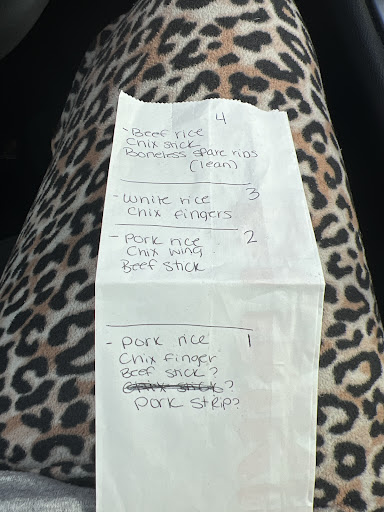 4
- Beef rice
Chix stick
Boneless spare ribs
(lean)
3
- White rice
Chix fingers
2
- Pork rice
Chix wing
Beef stick
1
- Pork rice
Chix finger
Beef stick?
Chix stick?
Pork strip?